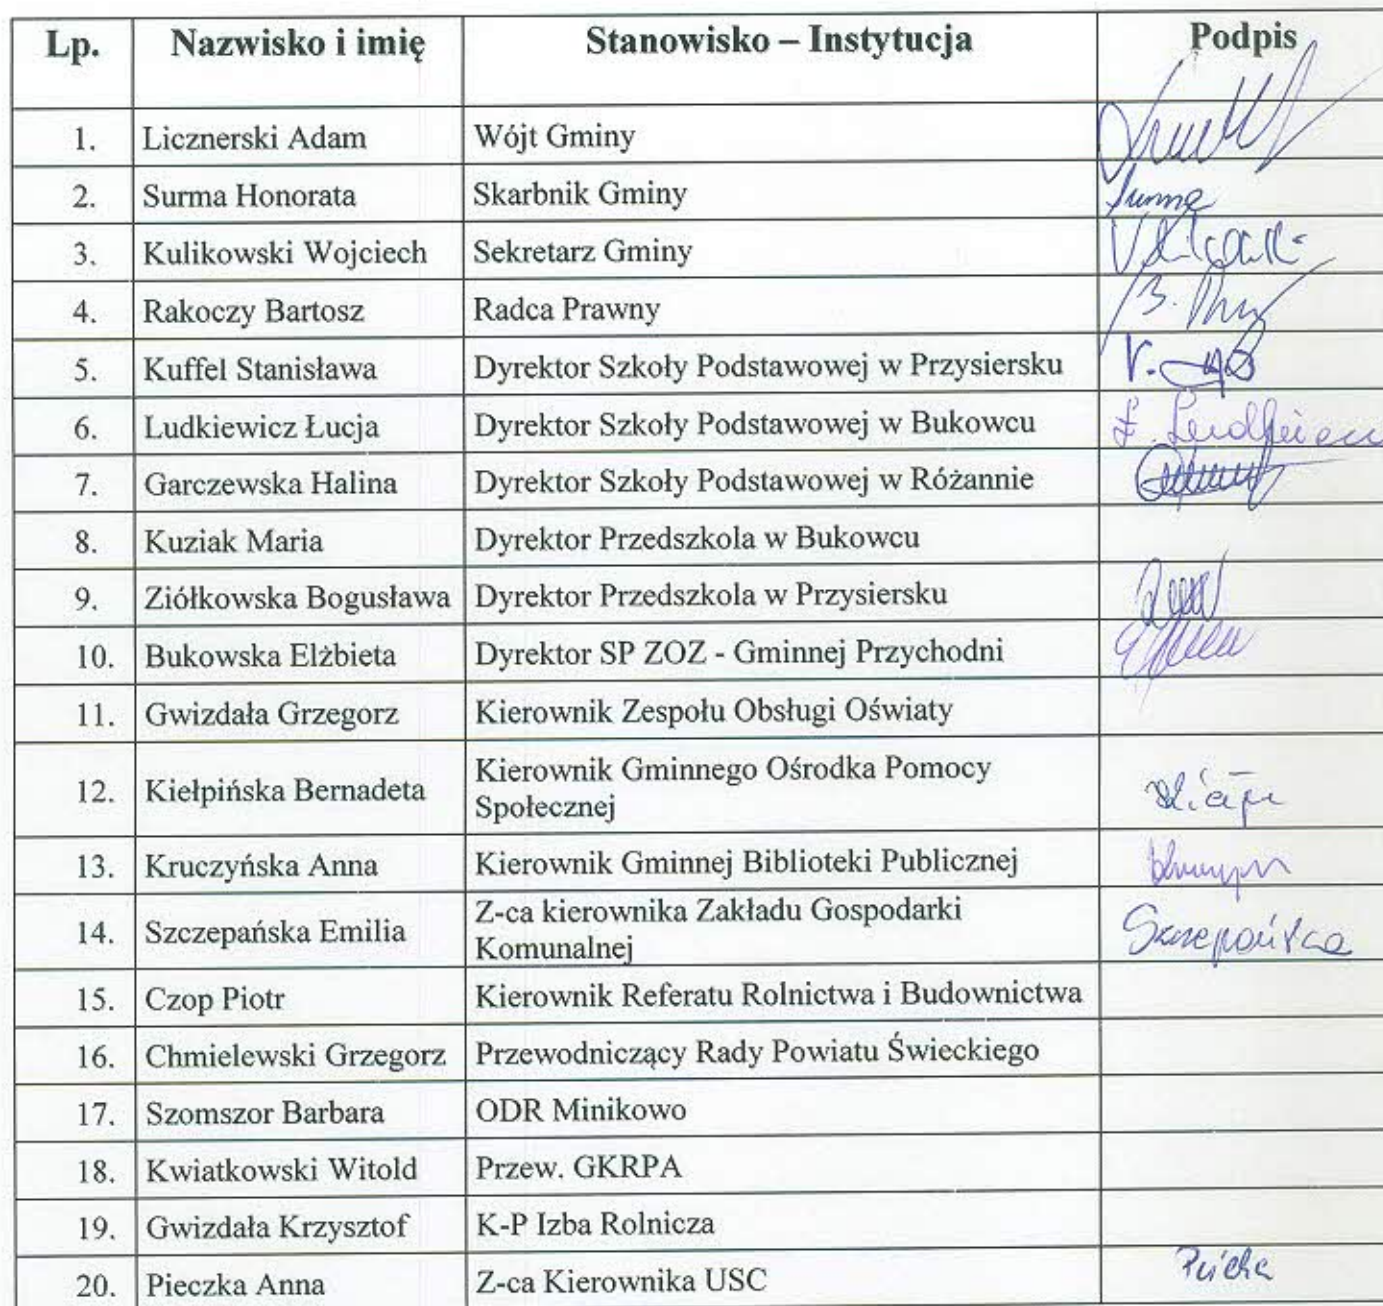 Lp. Nazwisko i imię Stanowisko – Instytucja Podpis
1. Licznerski Adam Wójt Gminy
2. Surma Honorata Skarbnik Gminy
3. Kulikowski Wojciech Sekretarz Gminy
4. Rakoczy Bartosz Radca Prawny
5. Kuffel Stanisława Dyrektor Szkoły Podstawowej w Przysiersku
6. Ludkiewicz Łucja Dyrektor Szkoły Podstawowej w Bukowcu
7. Garczewska Halina Dyrektor Szkoły Podstawowej w Różannie
8. Kuziak Maria Dyrektor Przedszkola w Bukowcu
9. Ziółkowska Bogusława Dyrektor Przedszkola w Przysiersku
10. Bukowska Elżbieta Dyrektor SP ZOZ - Gminnej Przychodni
11. Gwizdała Grzegorz Kierownik Zespołu Obsługi Oświaty
12. Kiełpińska Bernadeta Kierownik Gminnego Ośrodka Pomocy
Społecznej
13. Kruczyńska Anna Kierownik Gminnej Biblioteki Publicznej
14. Szczepańska Emilia Z-ca kierownika Zakładu Gospodarki
Komunalnej Szczepańska
15. Czop Piotr Kierownik Referatu Rolnictwa i Budownictwa
16. Chmielewski Grzegorz Przewodniczący Rady Powiatu Świeckiego
17. Szomszor Barbara ODR Minikowo
18. Kwiatkowski Witold Przew. GKRPA
19. Gwizdała Krzysztof K-P Izba Rolnicza
20. Pieczka Anna Z-ca Kierownika USC